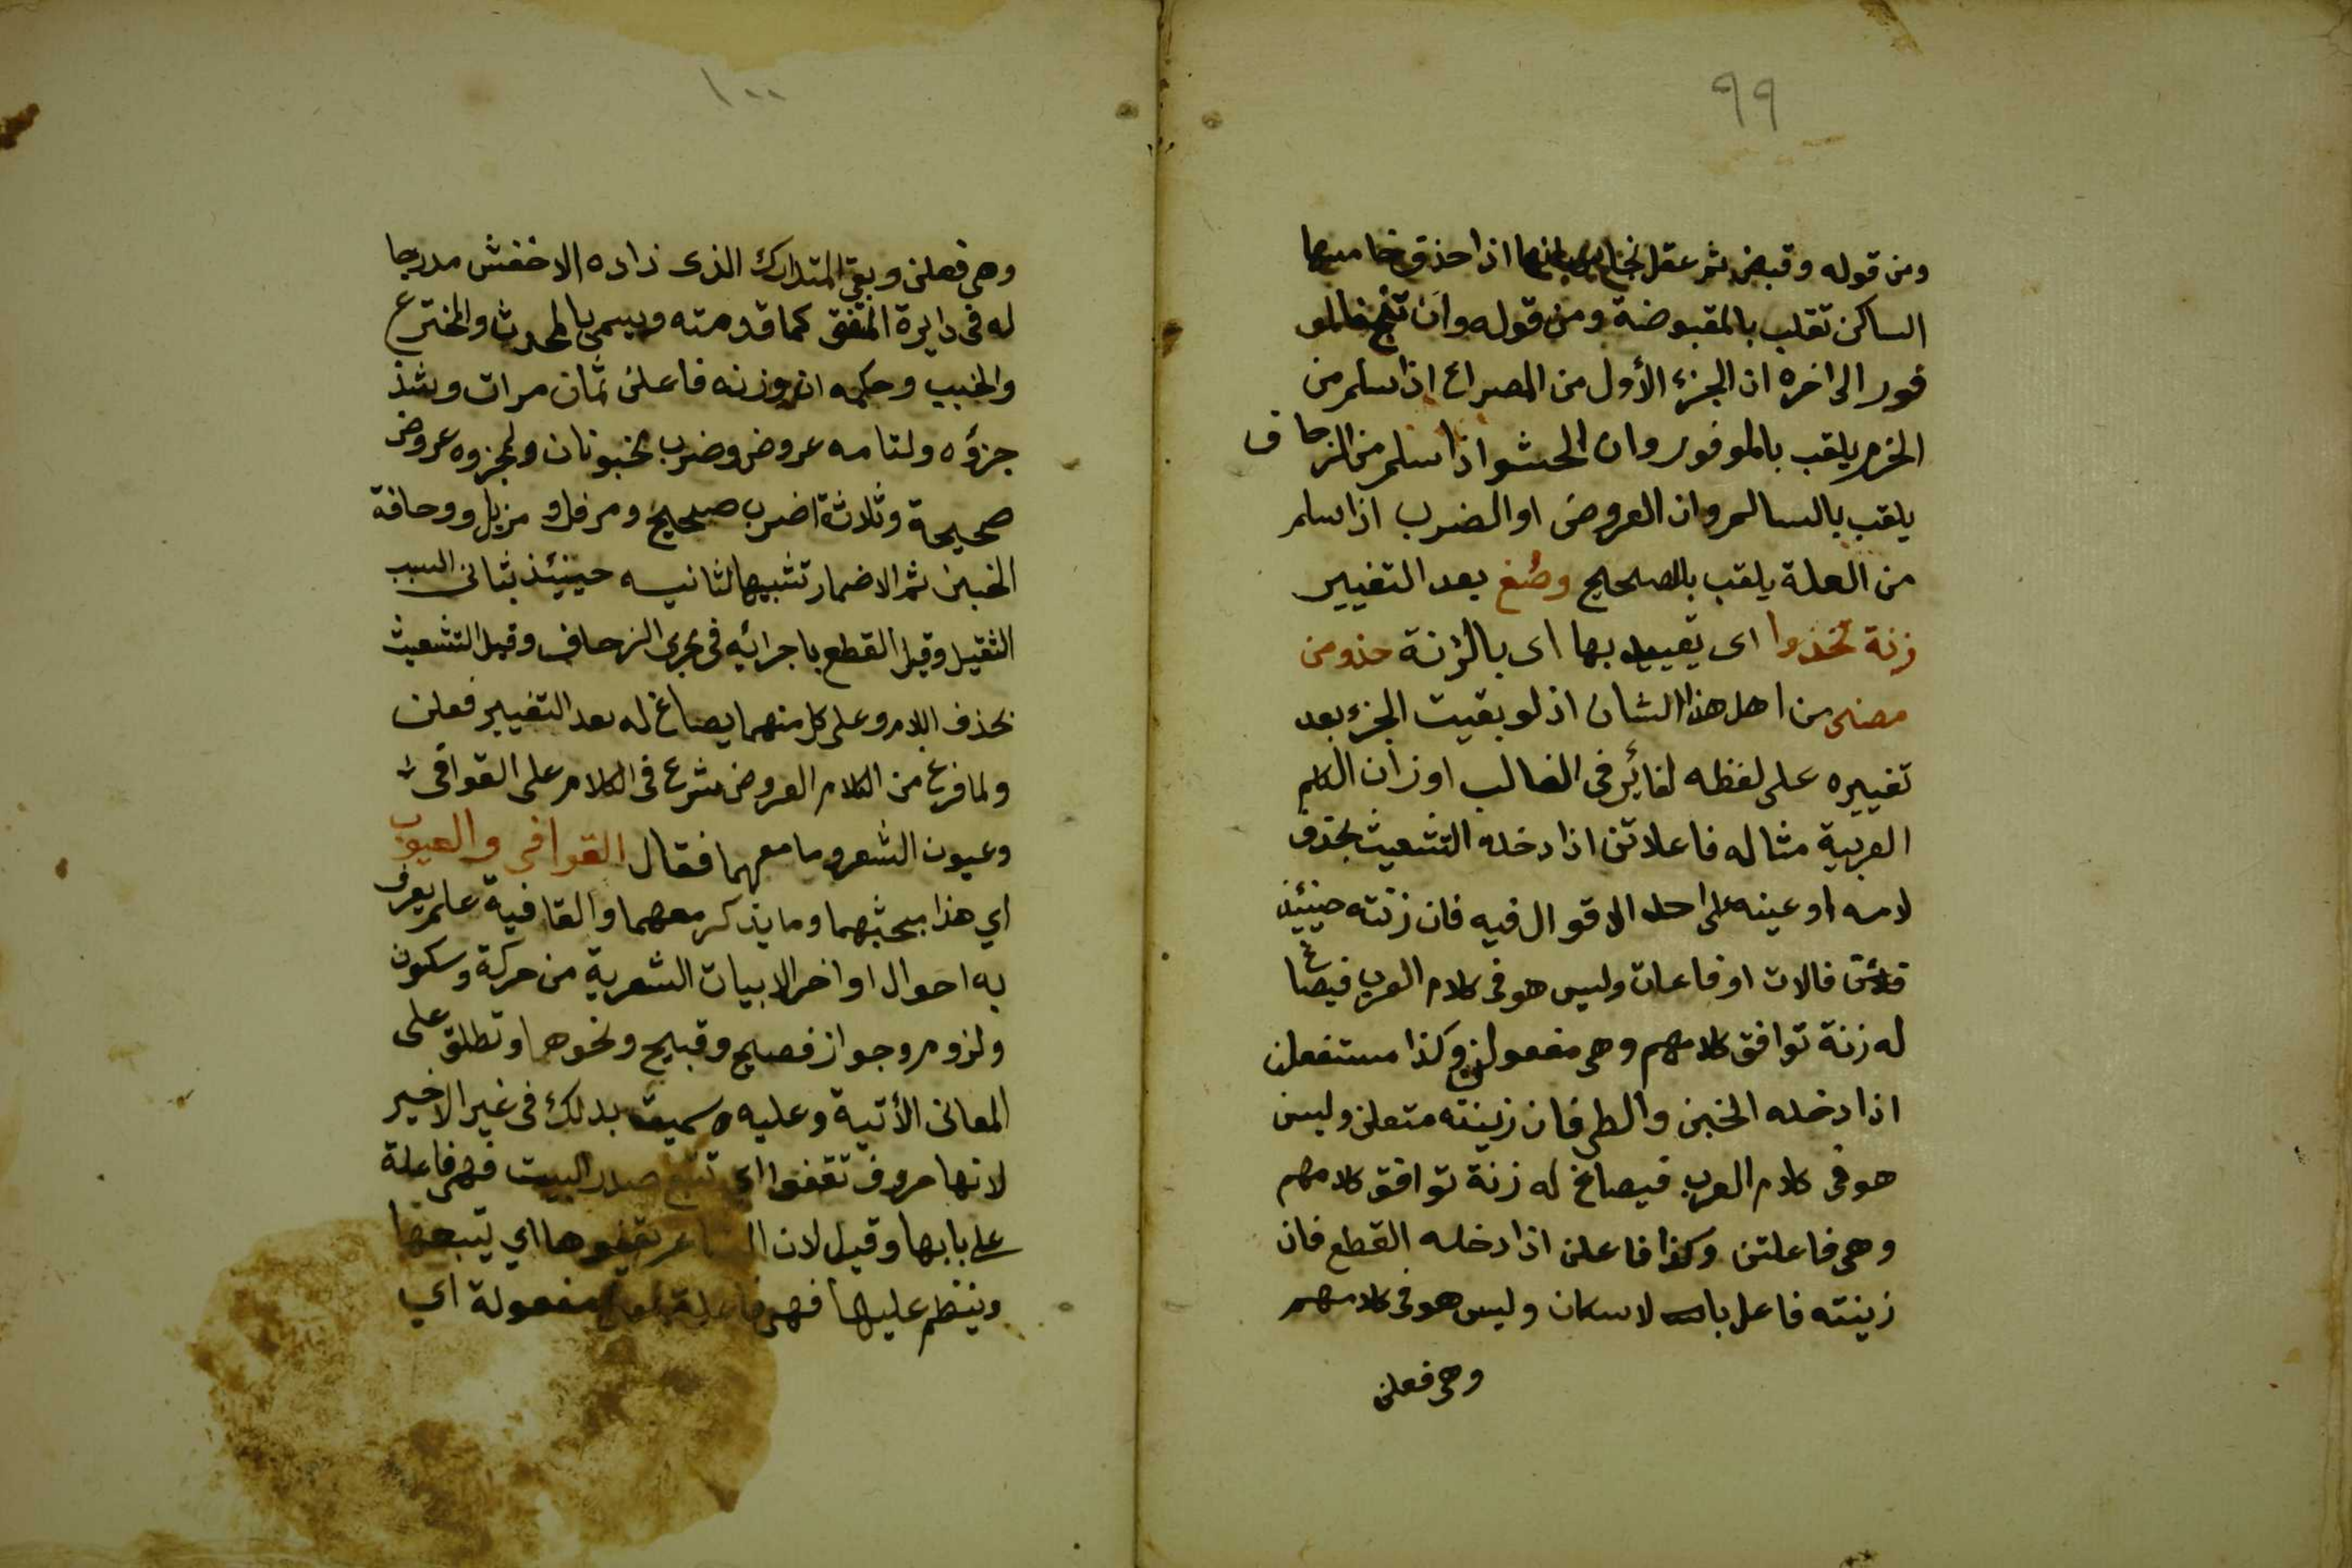 ٩٩
ومن قوله وقبض ثم عقل اذا حذف خامسها
الساكن تقلب بالمقبوضة ومن قوله وان تنج فالمو
فور الى اخره ان الجزء الأول من المصراع اذا سلم من
الخرم يلقب بالموفور وان الحشو اذا سلم من الزحاف
يلقب بالسالم وان العروض او الضرب اذا سلم
من العلة يلقب بالصحيح وصغ بعد التغيير
زنة تحذوا اى بها اى بالزنة حذو من
مضى من اهل هذا الشان اذ لو بقيت الجزء بعد
تغييره على لفظه لغاير فى الغالب اوزان الكلم
العربية مثاله فاعلاتن اذا دخله التشعيث بحذف
لامه او عينه على احد الاقوال فيه فان زنته حينئذ
فالات او فاعات وليس هو فى كلام العرب فيصاغ
له زنة توافق كلامهم وهى مفعولن وكذا مستفعلن
اذا دخله الخبن والطى فان زينته متعلن وليس
هو فى كلام العرب فيصاغ له زنة توافق كلامهم
وهى فاعلتن وكذا فاعلن اذا دخله القطع فان
زينته فاعل لاسكان وليس هو فى كلامهم
وهى فعلن
١٠٠
وهى فعلن وبقى المتدارك الذى زاده الاخفش مدرجا
له فى دايرة المتفق كما قدمته ويسمى بالمحدث والمخترع
والخبب وحكمه ان وزنه فاعلن ثمان مرات وشذ
جزؤه ولتامه عروض وضرب مخبونان ولمجزوه عروض
صحيحة وثلاثة اضرب صحيح ومرفل و مزيل ووحافة
الخبن ثم الاضمار تشبيها لثانيه حينئذ بثانى السبب
الثقيل وقيل القطع باجرائه فى مجرى الزحاف وقيل التشعيث
بحذف اللام وعلى كل منهما يصاغ له بعد التغيير فعلن
ولما فرغ من الكلام العروض شرع فى الكلام على القوافى
وعيون الشعر وما معهما فقال القوافي والعيوب
اي هذا مبحثهما وما يذكر معهما والقافية علم يعرف
به احوال اواخر الابيات الشعرية من حركة وسكون
ولزوم وجواز فصيح وقبيح ونحوها وتطلق على
المعانى الأتية وعليه وسميت بذلك فى غير الاخير
لانها حروف تقفوا اي تتبع صدر البيت فهى فاعلة
على بابها وقيل لان الشاعر يقفوها اي يتبعها
وينظم عليها فهى فاعلة مفعولة اي